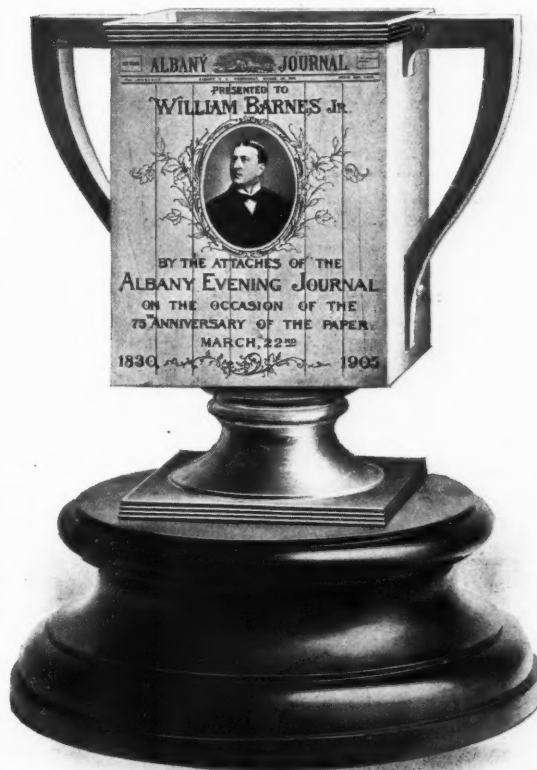 ALBANY JOURNAL
PRESENTED TO
WILLIAM BARNES JR.
BY THE ATTACHES OF THE
ALBANY EVENING JOURNAL
ON THE OCCASION OF THE
75TH ANNIVERSARY OF THE PAPER.
MARCH, 22ND
1830 1905